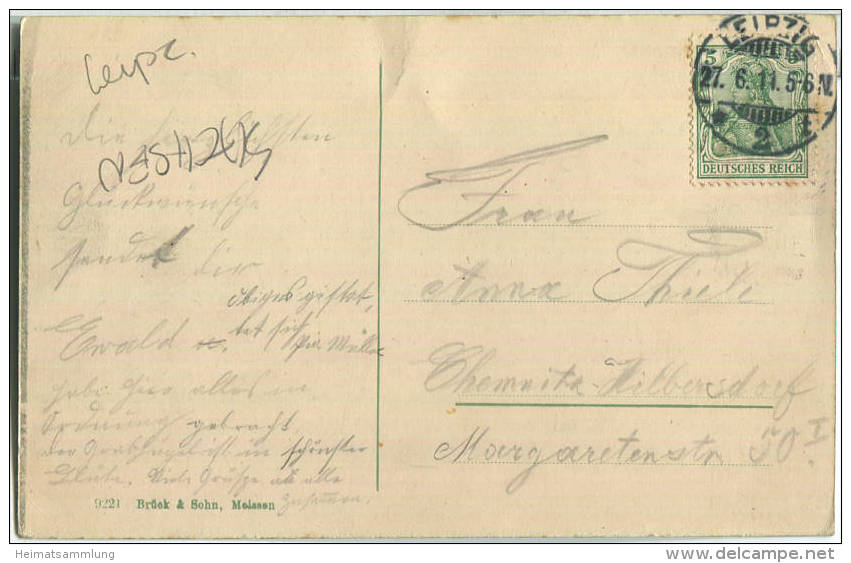 Leipz.
Die herzlichsten
Glückwünsche
sendet dir
Ewald
habe hier alles in
Ordnung gebracht
der Grabhügel ist in schönster
Blüte. Viele Grüße an alle
zusammen.
9221 Brück & Sohn, Meissen
LEIPZIG
27. 6. 11. 5-6 N.
* 2 t
5
DEUTSCHES REICH
Frau
Anna Thiele
Chemnitz-Hilbersdorf
Margaretenstr. 50 I
Heimatsammlung
www.delcampe.net